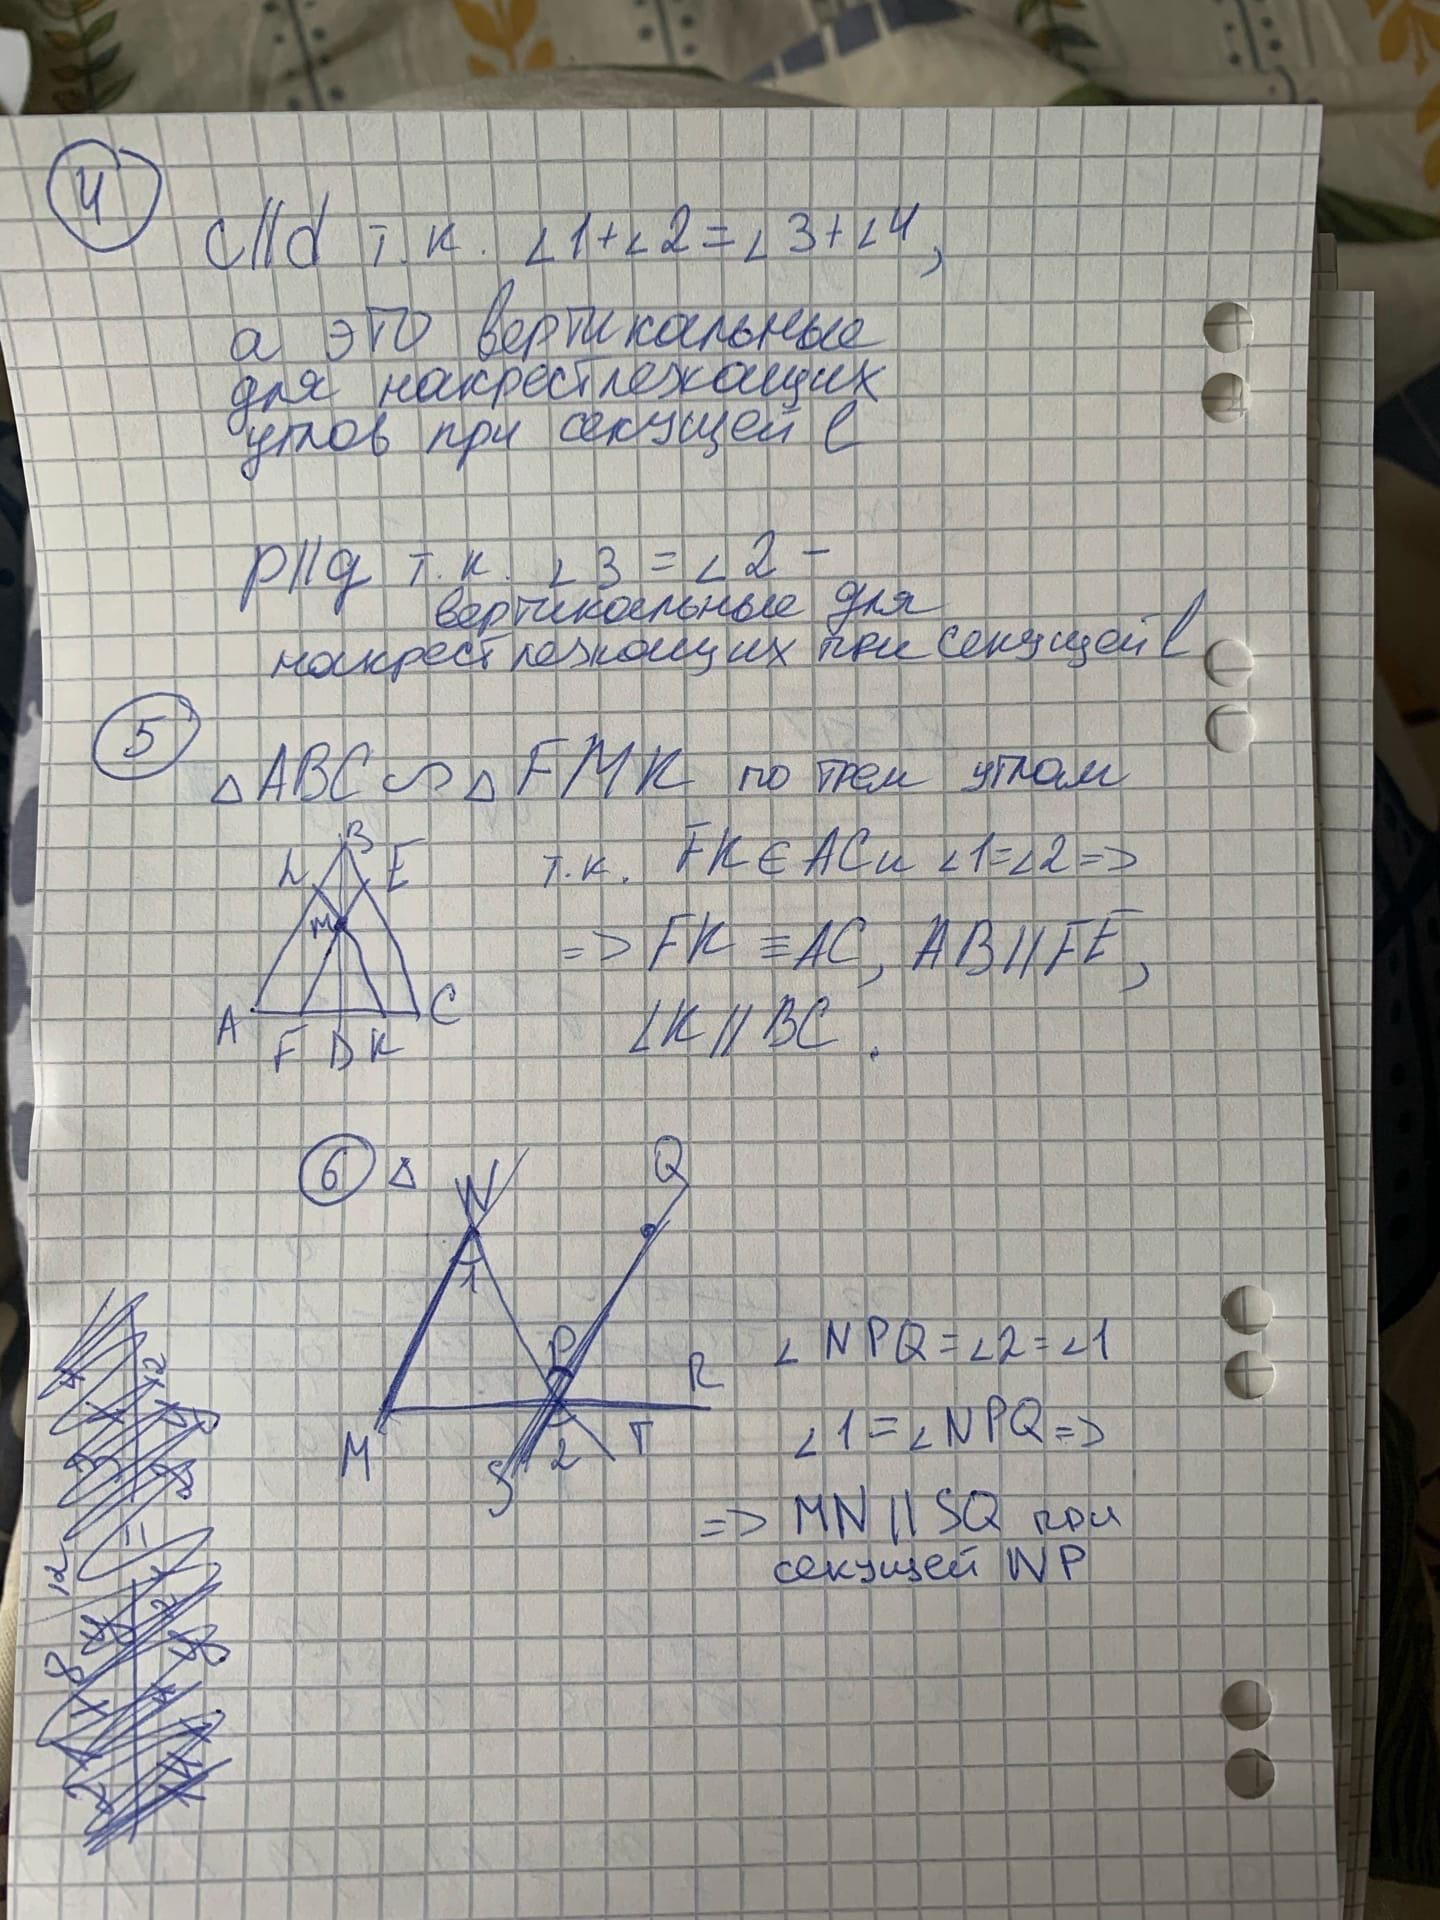 4
c//d т.к. ∠1+∠2=∠3+∠4,
а это вертикальные
для накрестлежащих
углов при секущей l
p//q т.к. ∠3 = ∠2 –
вертикальные для
накрест лежащих при секущей l
5
△ABC ∽ △FMK по трем углам
B
L E
M
A C
F D K
т.к. FK ∈ AC и ∠1=∠2 =>
=> FK ≡ AC, AB // FE,
LK // BC.
6 △
N Q
1
P R
M T
S 2
∠NPQ = ∠2 = ∠1
∠1 = ∠NPQ =>
=> MN // SQ при
секущей NP